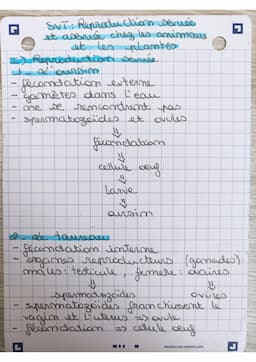 SVT: Reproduction sexuée
et asexuée chez les animaux
et les plantes
I) Reproduction sexuée
1. L'oursin
- fécondation externe
- gamètes dans l'eau
- ne se rencontrent pas
- spermatozoïdes et ovules
⇓
fécondation
⇓
cellule oeuf
⇓
larve
⇓
oursin
2. Le taureau
- fécondation interne
- organes reproducteurs (gonades)
mâles: testicule, femelle: ovaires
⇓ ⇓
spermatozoïdes ovules
- spermatozoïdes franchissent le
vagin et l'uterus => ovule
- fécondation => cellule oeuf